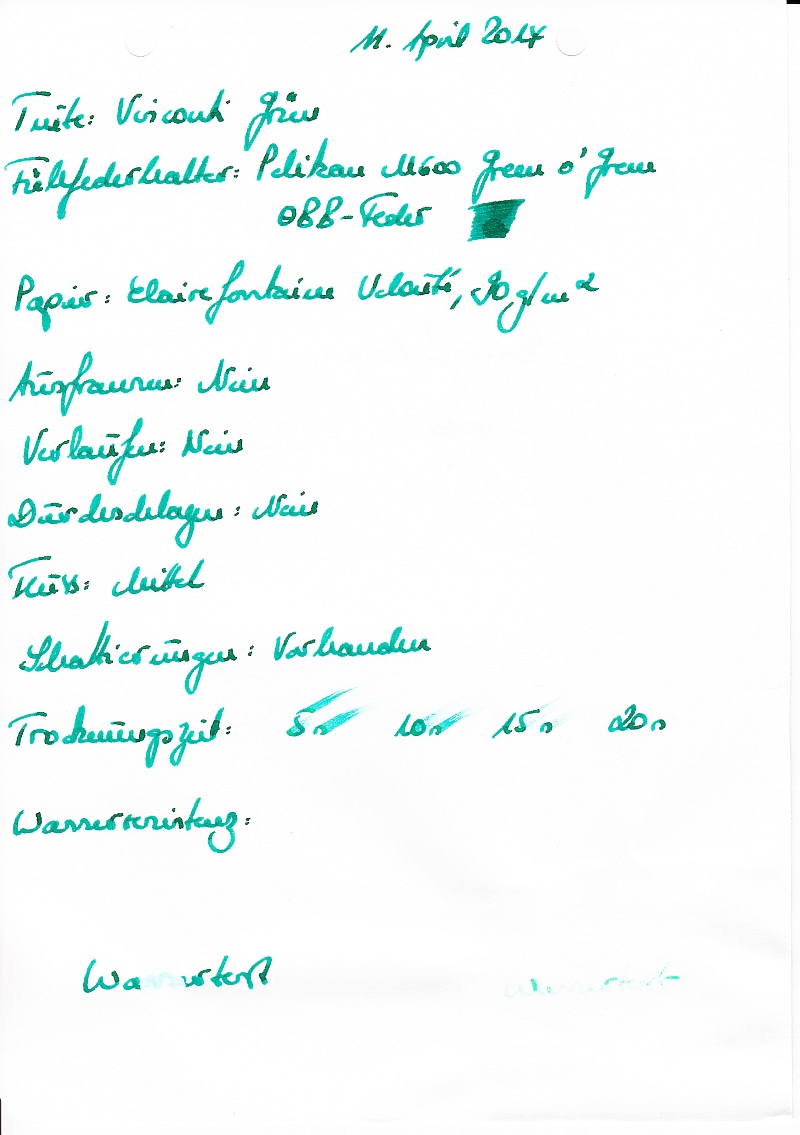 11. April 2014
Tinte: Visconti Grün
Füllfederhalter: Pelikan M600 Green o' Green
OBB-Feder
Papier: Clairefontaine Velouté, 90 g/m²
Ausfransen: Nein
Verlaufen: Nein
Durchschlagen: Nein
Fluss: Mittel
Schattierungen: Vorhanden
Trocknungszeit: 5s 10s 15s 20s
Wasserresistenz:
Wassertest Wassertest